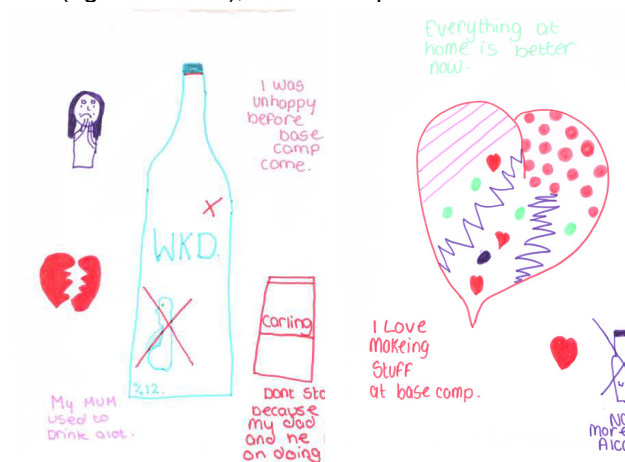 I was
unhappy
before
base
camp
come.
WKD.
%12.
My MUM
used to
Drink alot.
Carling
Dont
because
my dad
and he
on doing
Everything at
home is better
now.
I Love
Makeing
Stuff
at base comp.
More